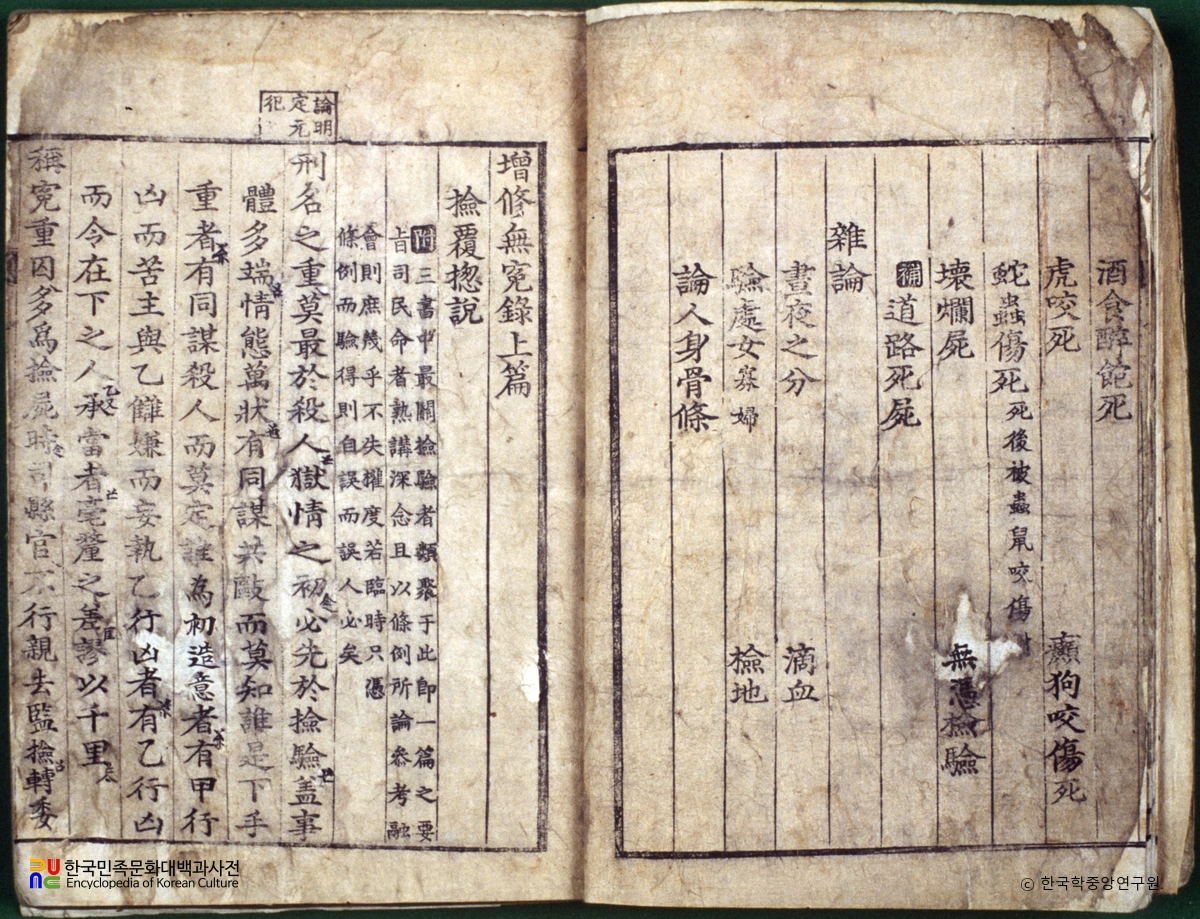 酒食醉飽死
虎咬死 癲狗咬傷死
蛇蟲傷死 死後被蟲鼠咬傷
壞爛屍 無憑檢驗
補 道路死屍
雜論
晝夜之分 滴血
驗處女寡婦 檢地
論人身骨條
增修無冤錄上篇
檢覆揔說
附 三書中最關檢驗者類聚于此卽一篇之要
旨司民命者熟講深念且以條例所論參考融
會則庶幾乎不失權度若臨時只憑
條例而驗得則自誤而誤人必矣
論明
定元
犯
刑名之重莫最於殺人獄情之初必先於檢驗盖事
體多端情態萬狀有同謀共毆而莫知誰是下手
重者有同謀殺人而莫定誰為初造意者有甲行
凶而苦主與乙讎嫌而妄執乙行凶者有乙行凶
而令在下之人承當者毫釐之差謬以千里
稱冤重囚多爲檢屍時司縣官不行親去監檢轉委
한국민족문화대백과사전
Encyclopedia of Korean Culture
© 한국학중앙연구원